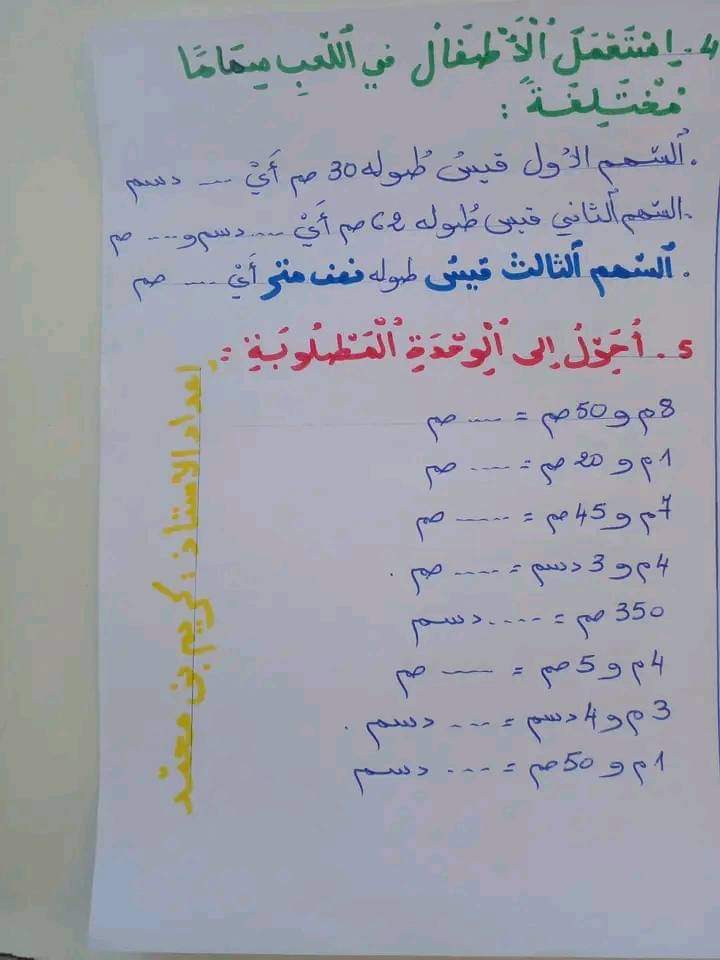 4. اِسْتَعْمَلَ اُلْأَطْفَالُ في اُللَّعِبِ سِهَامًا
مُخْتَلِفَةً :
. اُلسّهم الأوّل قيسُ طُوله 30 صم أَيْ ---- دسم
. السّهم اُلثاني قيس طُوله 62 صم أَيْ ---- دسم و---- صم
. اُلسّهم اُلثالث قيسُ طوله نصف متر أَيْ ---- صم
5. أُحَوِّلُ إلى اُلْوِحْدَةِ اُلْمَطْلُوبَةِ :
8م و50صم = ---- صم
1م و 20 صم = ---- صم
7م و45صم = ---- صم
4م و 3 دسم = ---- صم .
350 صم = ---- دسم
4م و 5 صم = ---- صم
3م و 4دسم = --- دسم .
1م و 50 صم = --- دسم
إعداد الأستاذ : كريم بن محمّد